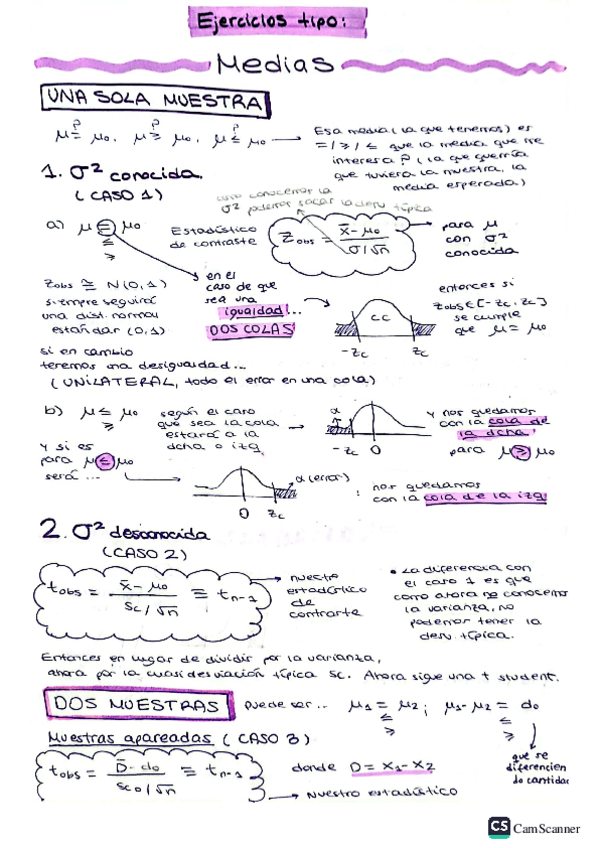 Ejercicios tipo:
Medias
UNA SOLA MUESTRA
μ =? μ₀, μ ≥? μ₀, μ ≤? μ₀ → Esa media (la que tenemos) es
= / ≥ / ≤ que la media que me
interesa? (la que querría
que tuviera la muestra, la
media esperada)
1. σ² conocida.
(CASO 1)
como conocemos la
σ² podemos sacar la desv típica
a) μ = μ₀
≤
≥
Estadístico
de contraste
Zobs = x̄ - μ₀ / σ/√n
para μ
con σ²
conocida
Zobs ≅ N(0,1)
siempre seguirá
una dist. normal
estándar (0,1)
en el
caso de que
sea una
igualdad!...
DOS COLAS
CC
-Zc Zc
entonces si
Zobs ∈ [-Zc, Zc]
se cumple
que μ = μ₀
si en cambio
tenemos una desigualdad...
(UNILATERAL, todo el error en una cola)
b) μ ≤ μ₀
según el caso
que sea la cola
estará a la
dcha o izq.
α
-Zc 0
y nos quedamos
con la cola de
la dcha!
para μ ≥ μ₀
y si es
para μ ≤ μ₀
será ...
α (error)
0 Zc
: nos quedamos
con la cola de la izq
2. σ² desconocida
(CASO 2)
tobs = x̄ - μ₀ / Sc/√n ≡ tn-1
nuestro
estadístico
de
contraste
• La diferencia con
el caso 1 es que
como ahora no conocemos
la varianza, no
podemos tener la
desv. típica.
Entonces en lugar de dividir por la varianza,
ahora por la cuasidesviación típica Sc. Ahora sigue una t student.
DOS MUESTRAS puede ser... μ₁ = μ₂ ; μ₁ - μ₂ = do
≤ ≤
≥ ≥
Muestras apareadas (CASO 3)
que se
diferencien
do cantidad
tobs = D̄ - do / ScD/√n ≡ tn-1
donde D = X₁ - X₂
Nuestro estadístico
CS CamScanner